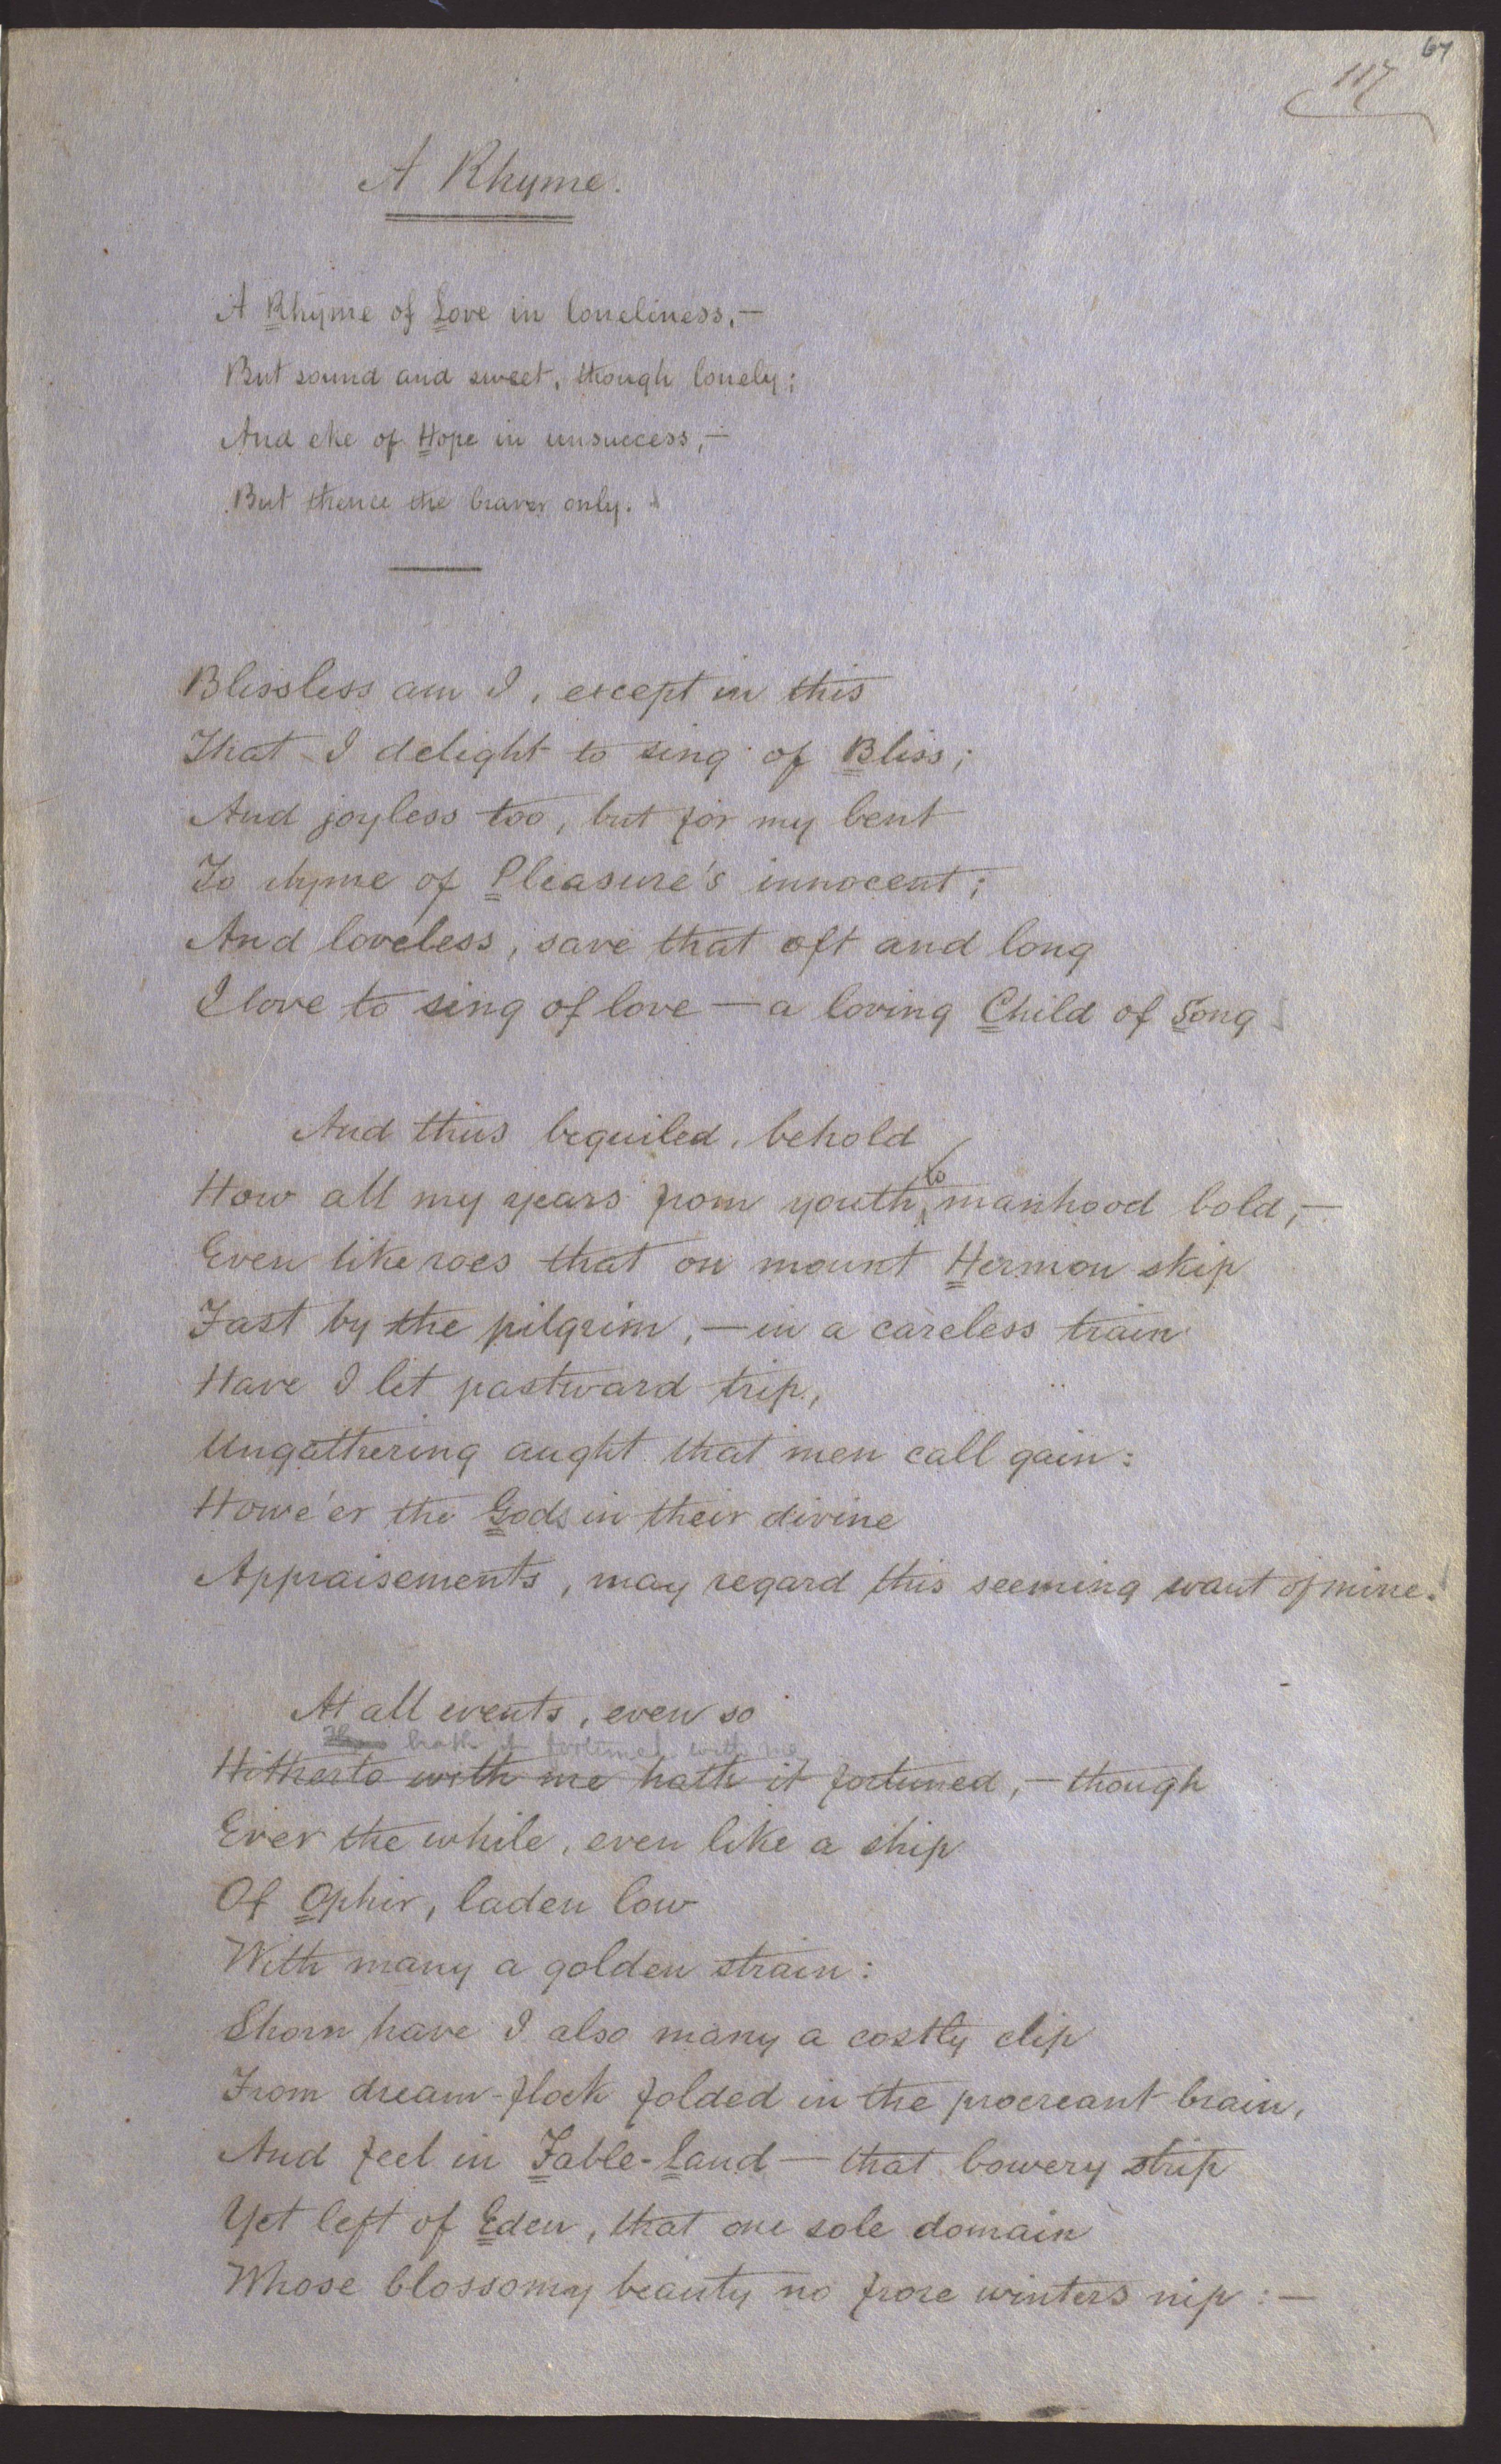 67
117
A Rhyme.
A Rhyme of Love in loneliness,—
But sound and sweet, though lonely;
And eke of Hope in unsuccess,—
But thence the braver only.
Blissless am I, except in this
That I delight to sing of Bliss;
And joyless too, but for my bent
To rhyme of Pleasure's innocent;
And loveless, save that oft and long
I love to sing of love—a loving Child of Song
And thus beguiled, behold
How all my years from youth to manhood bold,—
Even like roes that on mount Hermon skip
Fast by the pilgrim,—in a careless train
Have I let pastward trip,
Ungathering aught that men call gain:
Howe'er the Gods in their divine
Appraisements, may regard this seeming want of mine.
At all events, even so
hath it fortuned with me
Hitherto with me hath it fortuned,—though
Ever the while, even like a ship
Of Ophir, laden low
With many a golden strain:
Shorn have I also many a costly clip
From dream-flock folded in the procreant brain,
And feel in Fable-Land—that bowery strip
Yet left of Eden, that one sole domain
Whose blossomy beauty no frore winters nip:—